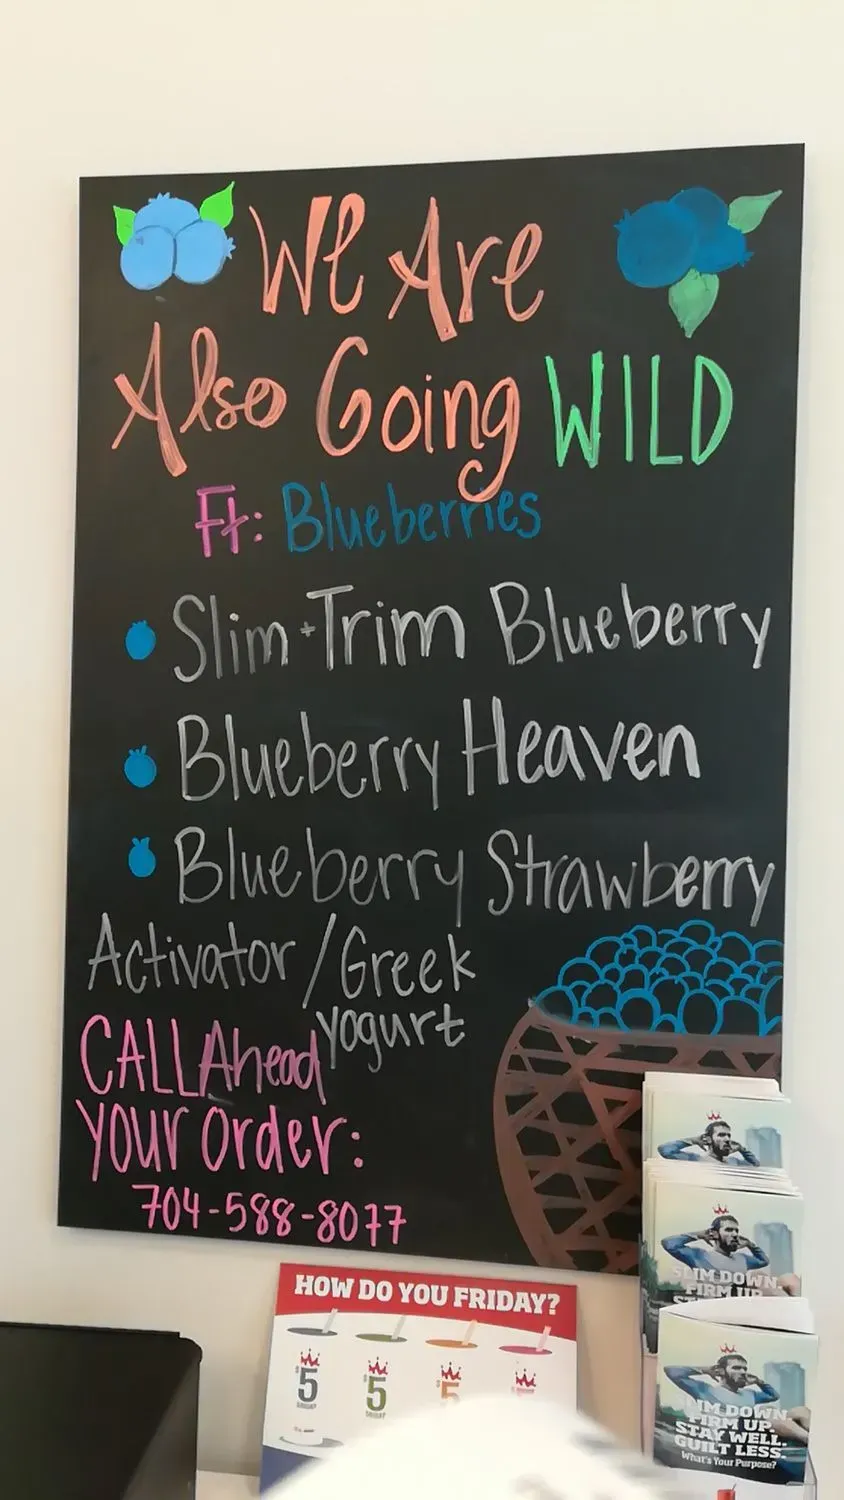 We Are
Also Going WILD
Ft: Blueberries
Slim+Trim Blueberry
Blueberry Heaven
Blueberry Strawberry
Activator/Greek
yogurt
CALL Ahead
Your Order:
704-588-8077
HOW DO YOU FRIDAY?
$5 $5 $5
SLIM DOWN.
FIRM UP.
SLIM DOWN.
FIRM UP.
STAY WELL.
GUILT LESS.
What's Your Purpose?